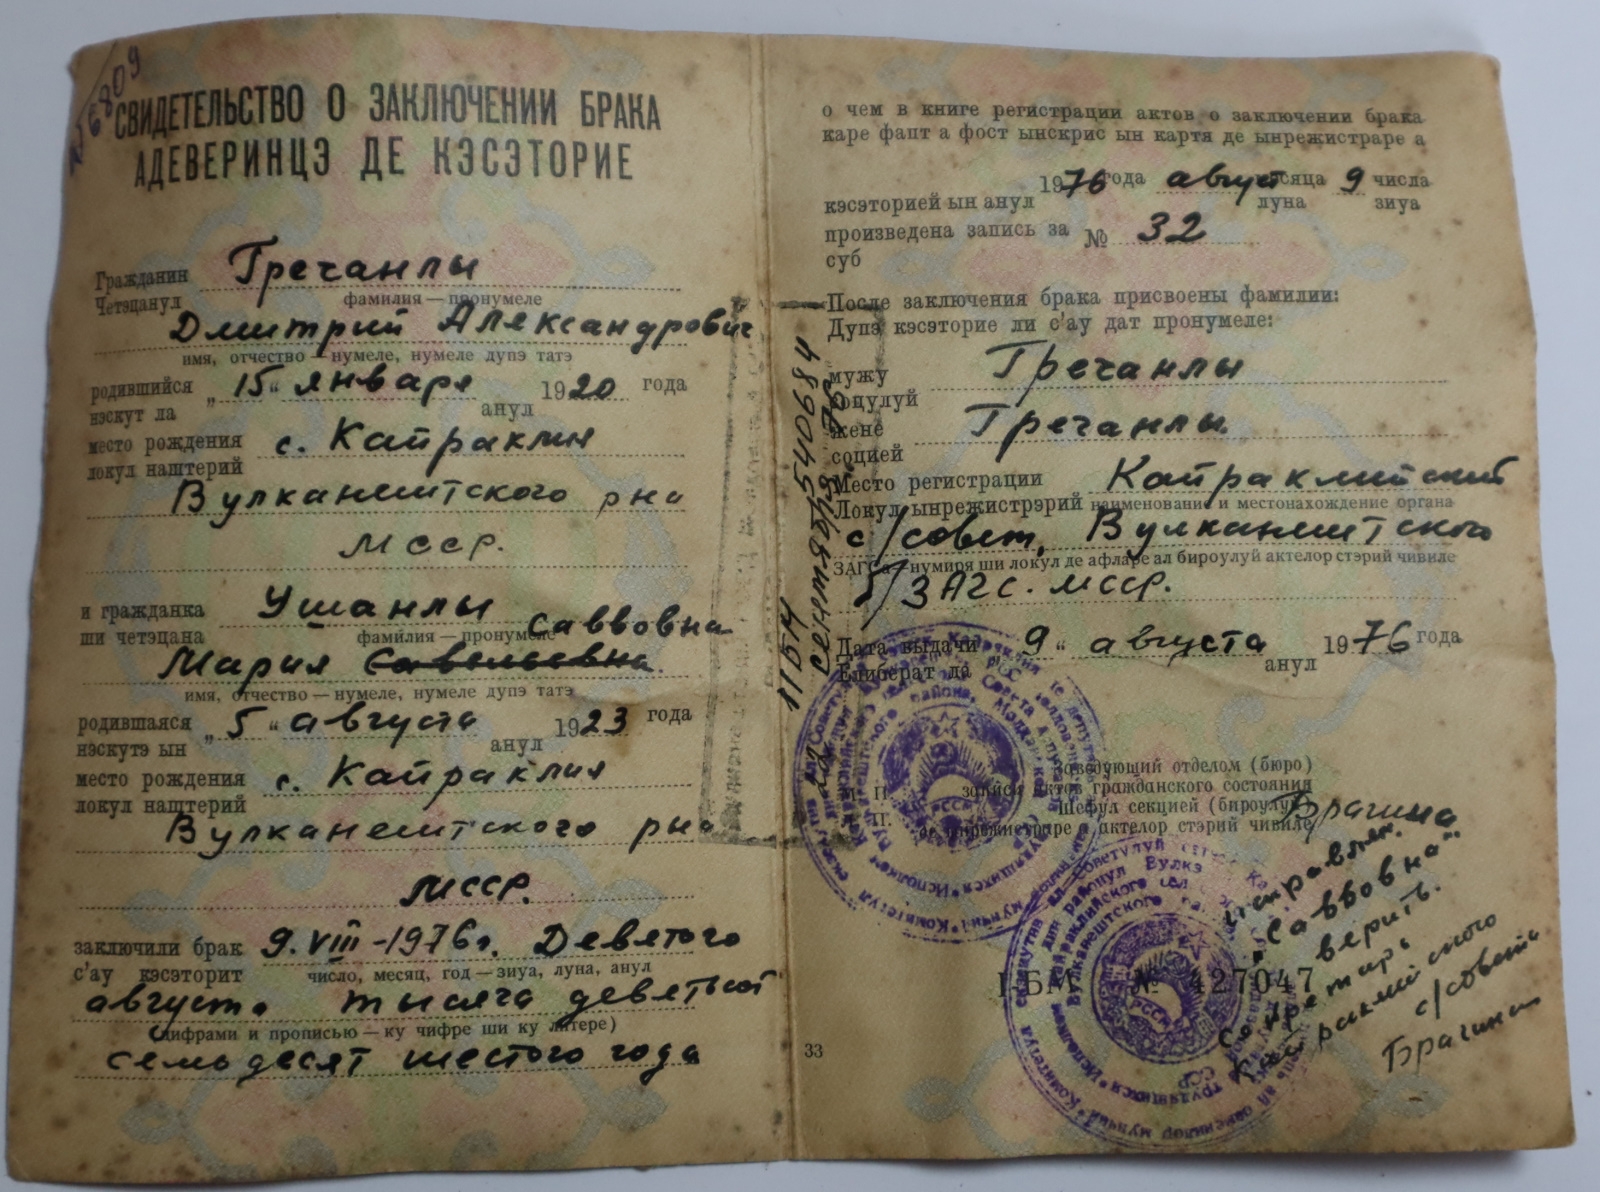 № 6809
СВИДЕТЕЛЬСТВО О ЗАКЛЮЧЕНИИ БРАКА
АДЕВЕРИНЦЭ ДЕ КЭСЭТОРИЕ
Гражданин Гречанлы
Четэцанул фамилия — пронумеле
Дмитрий Александрович
имя, отчество — нумеле, нумеле дупэ татэ
родившийся „15“ января 1920 года
нэскут ла анул
место рождения с. Кайраклия
локул наштерий
Вулканештского р-на
МССР.
и гражданка Ушанлы
ши четэцана фамилия — пронумеле Саввовна
Мария Савельевна
имя, отчество — нумеле, нумеле дупэ татэ
родившаяся „5“ августа 1923 года
нэскутэ ын анул
место рождения с. Кайраклия
локул наштерий
Вулканештского р-на
МССР.
заключили брак 9.VIII-1976г. Девятого
с'ау кэсэторит число, месяц, год — зиуа, луна, анул
августа тысяча девятьсот
(цифрами и прописью — ку чифре ши ку литере)
семьдесят шестого года
о чем в книге регистрации актов о заключении брака
каре фапт а фост ынскрис ын картя де ынрежистраре а
1976 года август месяца 9 числа
кэсэторией ын анул луна зиуа
произведена запись за № 32
суб
После заключения брака присвоены фамилии:
Дупэ кэсэторие ли с'ау дат пронумеле:
мужу Гречанлы
соцулуй
жене Гречанлы
социей
Место регистрации Кайраклийский
Локул ынрежистрэрий наименование и местонахождение органа
с/совет, Вулканештского
ЗАГСа — нумиря ши локул де афларе ал бироулуй актелор стэрий чивиле
б/ЗАГС. МССР.
Дата выдачи „9“ августа 1976 года
Елиберат ла анул
11БА 540684
сентября 76г.
Заведующий отделом (бюро)
М. П. записи актов гражданского состояния
Шефул секцией (бироулуй)
Л. П. де ынрежистраре а актелор стэрий чивиле
Брагина
Исправлен.
„Саввовна“
верить.
I-БА № 427047
Секретарь
Кайраклийского
с/совета
Брагина
33